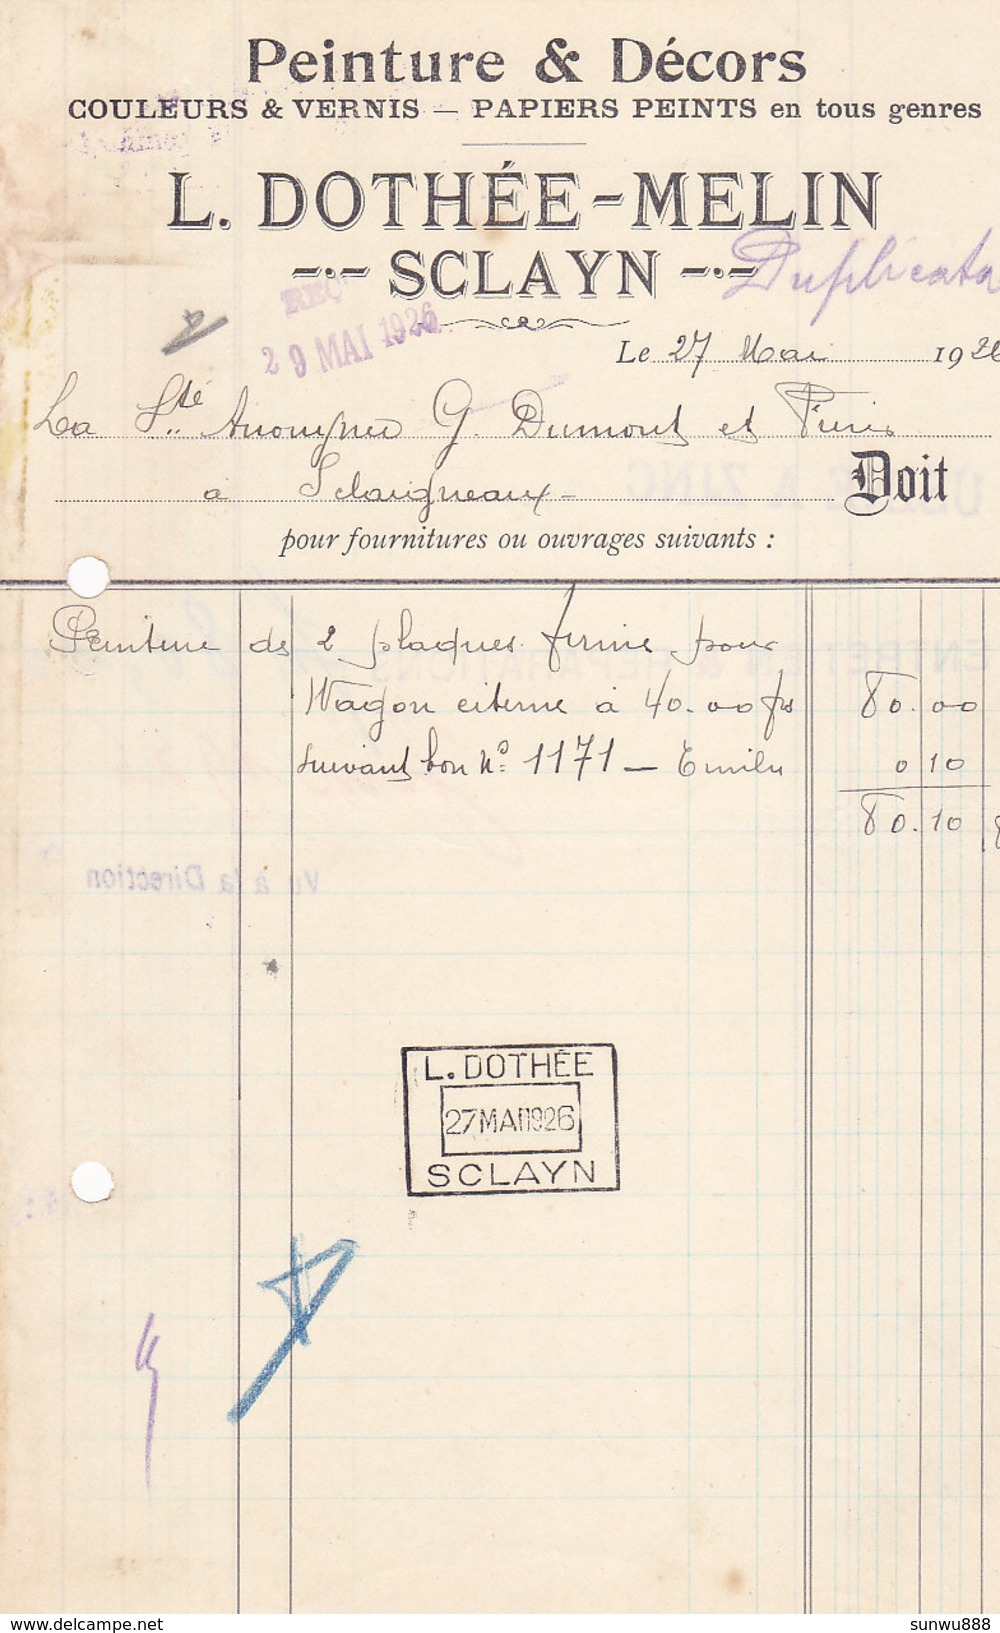 Peinture & Décors
COULEURS & VERNIS — PAPIERS PEINTS en tous genres
L. DOTHÉE-MELIN
SCLAYN
Duplicata
REÇU
29 MAI 1926
Le 27 Mai 1926
La Sté Anonyme G. Dumont et Frères
à Sclaigneaux - Doit
pour fournitures ou ouvrages suivants :
Peinture de 2 plaques pour
Wagon citerne à 40.00 frs 80.00
suivant bon N° 1171 — 0 10
80.10
Vu à la Direction
L. DOTHÉE
27 MAI 1926
SCLAYN
sunwu888